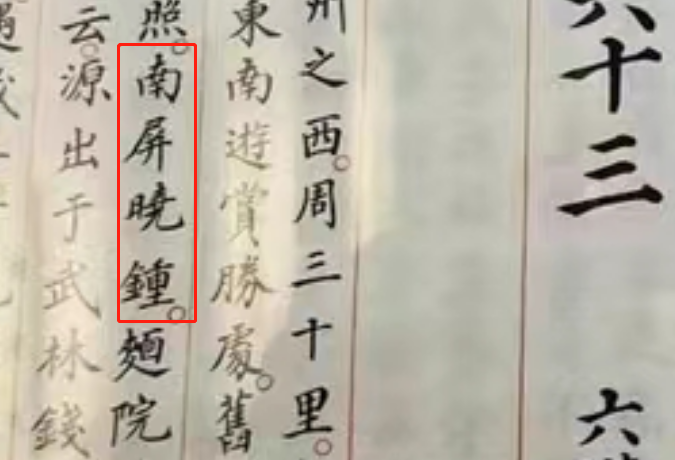 六十三 六
州之西。周三十里。
東南遊賞勝處。舊
照。南屏曉鍾。麵院
云。源出于武林錢